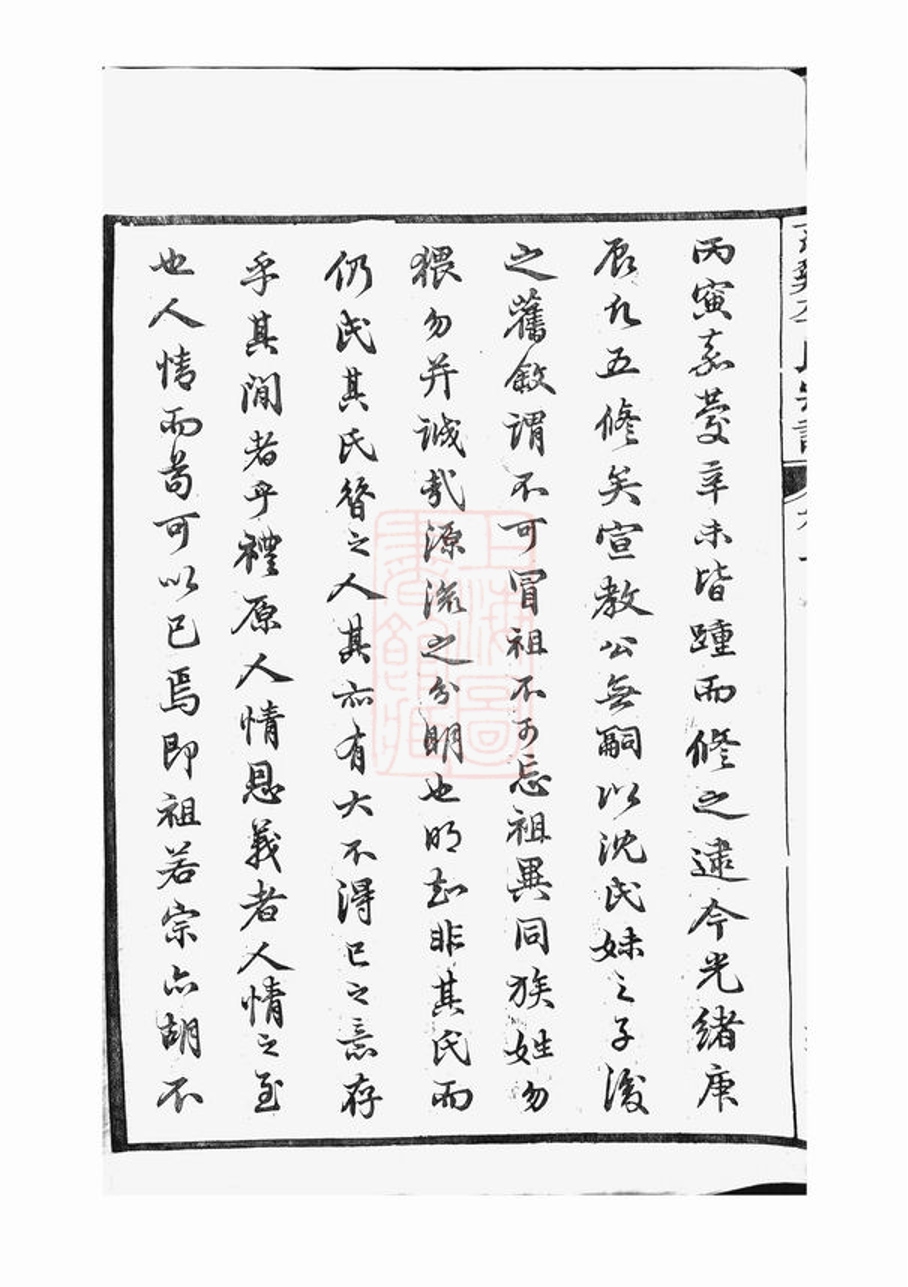 丙寅嘉慶辛未皆踵而修之逮今光緒庚
辰凡五修矣宣教公無嗣以沈氏妹之子後
之舊敘謂不可冒祖不可忘祖異同族姓勿
猥勿并誠哉源流之分明也明知非其氏而
仍氏其氏昝之人其亦有大不得已之意存
乎其間者乎禮原人情恩義者人情之至
也人情而苟可以已焉即祖若宗亦胡不
上海圖書館藏